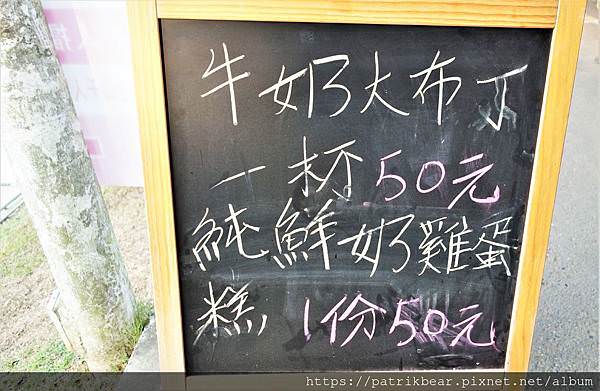 牛奶大布丁
一杯50元
純鮮奶雞蛋
糕 1份50元
https://patrikbear.pixnet.net/album